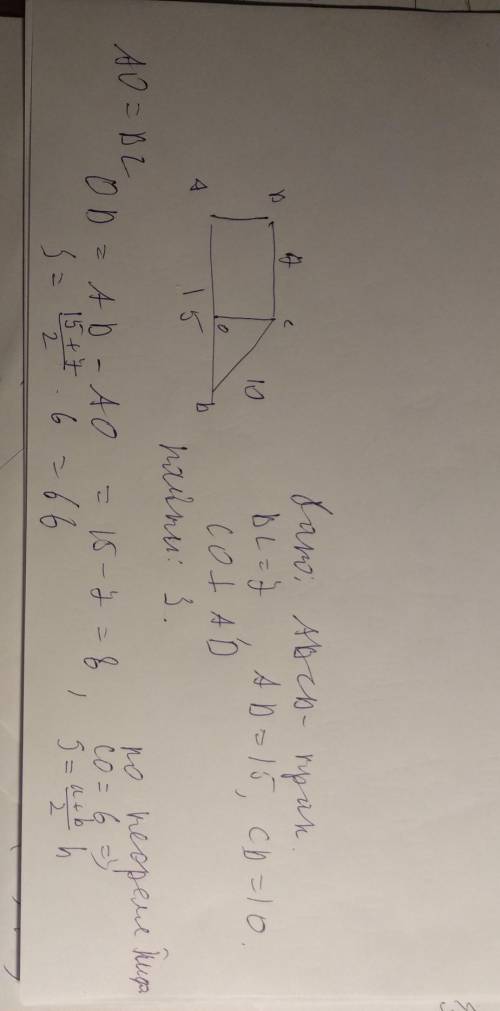 Дано: ABCD - трап.
BC = 7, AD = 15, CD = 10.
CO ⊥ AD
Найти: S.
B 7 C
10
A 15 O D
AO = BC
OD = AD - AO = 15 - 7 = 8, по теореме Пифа
CO = 6 =>
S = a+b/2 h
S = 15+7/2 · 6 = 66